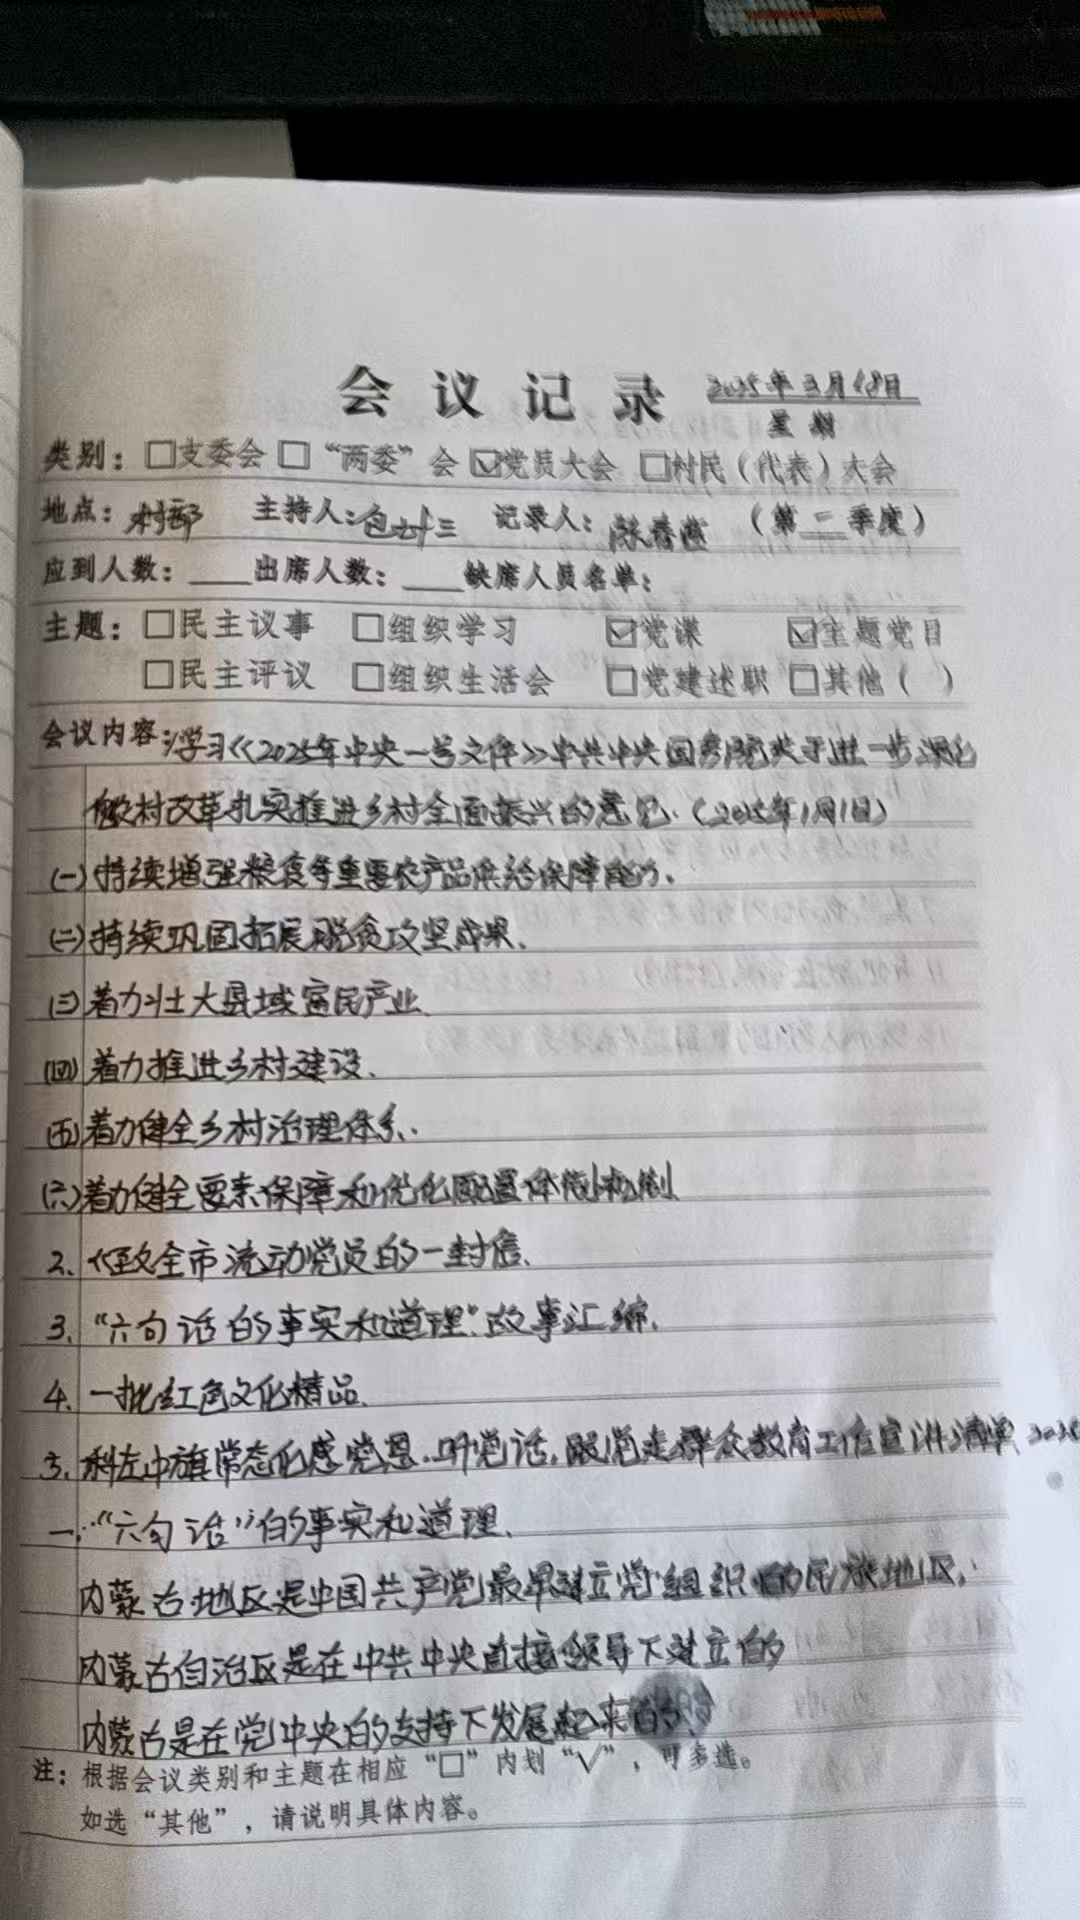 会议记录 2025年3月18日
星期
类别：□支委会 □“两委”会 ☑党员大会 □村民（代表）大会
地点：村部 主持人：包 十三 记录人：张香 （第二季度）
应到人数：____出席人数：____缺席人员名单：
主题：□民主议事 □组织学习 ☑党课 ☑主题党日
□民主评议 □组织生活会 □党建述职 □其他（ ）
会议内容：1.学习《2025年中央一号文件》中共中央国务院关于进一步深化
农村改革扎实推进乡村全面振兴的意见.（2025年1月1日）
(一)持续增强粮食等重要农产品供给保障能力.
(二)持续巩固拓展脱贫攻坚成果、
(三)着力壮大县域富民产业
(四)着力推进乡村建设、
(五)着力健全乡村治理体系、
(六)着力健全要素保障和优化配置体制机制
2、《致全市流动党员的一封信、
3、“六句话的事实和道理”故事汇编、
4、一批红色文化精品、
5、科左中旗常态化感党恩、听党话，跟党走群众教育工作宣讲清单 2025
一、“六句话”的事实和道理、
内蒙古地区是中国共产党最早建立党组织的民族地区，
内蒙古自治区是在中共中央直接领导下建立的
内蒙古是在党中央的支持下发展起来的、
注：根据会议类别和主题在相应“□”内划“√”，可多选。
如选“其他”，请说明具体内容。